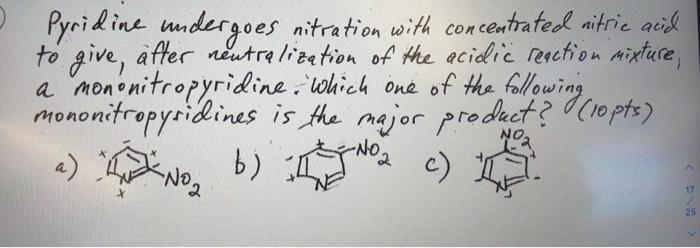 Pyridine undergoes nitration with concentrated nitric acid
to give, after neutralization of the acidic reaction mixture,
a mononitropyridine. Which one of the following
mononitropyridines is the major product? (10 pts)
a) N NO2 b) N NO2 c) NO2 N
17
/
25